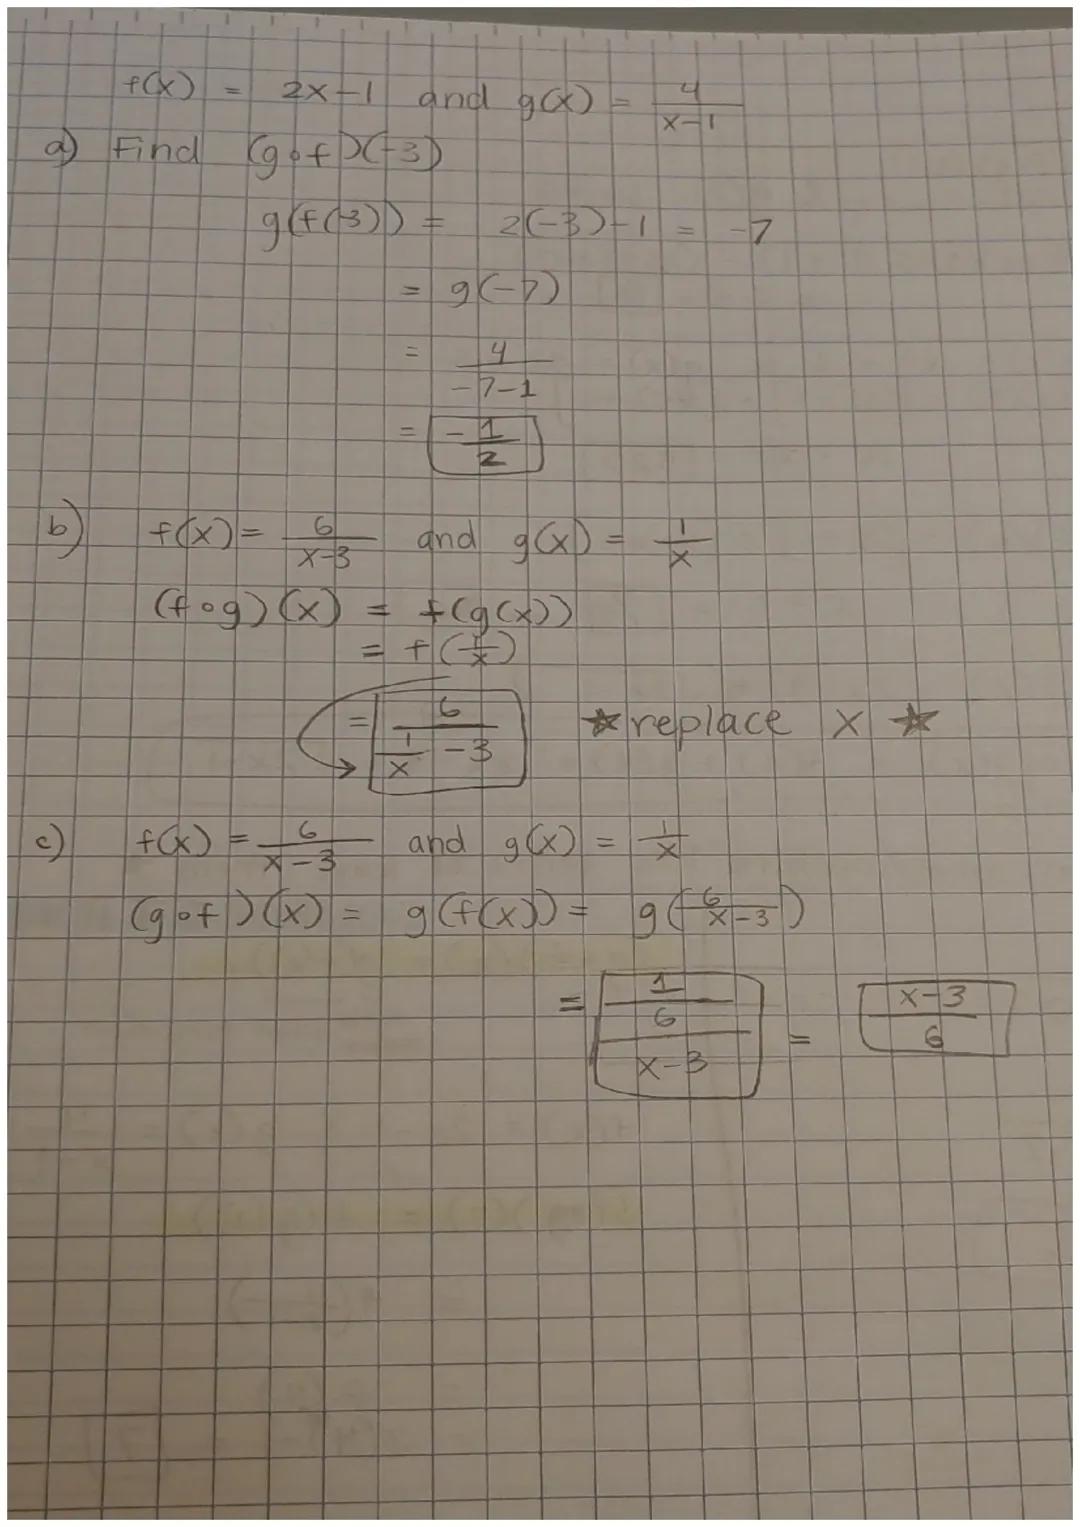 f(x) = 2x-1 and g(x) = 4/(x-1)
a) Find (g∘f)(-3)
g(f(-3)) = 2(-3)-1 = -7
= g(-7)
= 4/(-7-1)
= -1/2
b) f(x) = 6/(x-3) and g(x) = 1/x
(f∘g)(x) = f(g(x))
= f(1/x)
= 6/(1/x - 3) ☆ replace x ☆
c) f(x) = 6/(x-3) and g(x) = 1/x
(g∘f)(x) = g(f(x)) = g(6/(x-3))
= 1/(6/(x-3)) = (x-3)/6